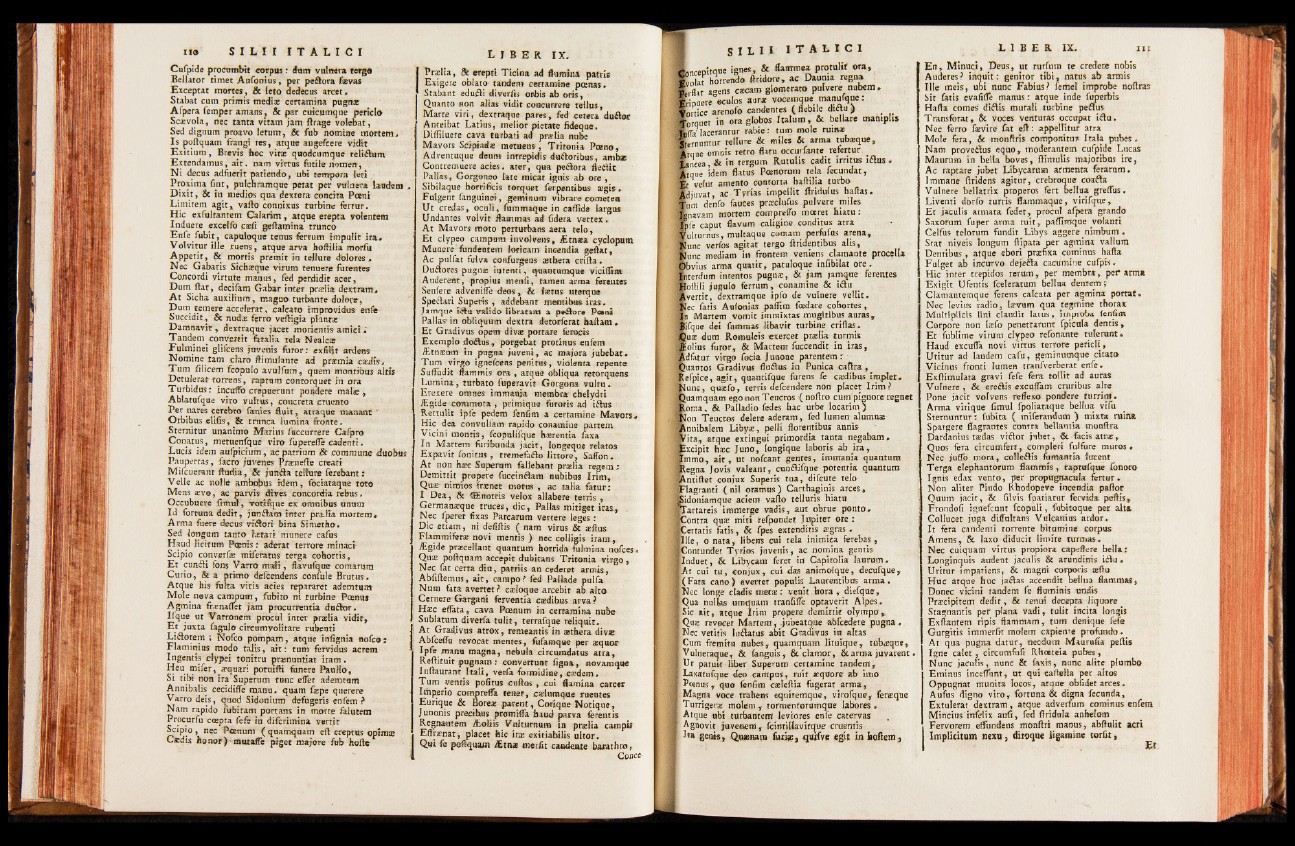 110 SILII ITALICI
Cuspide procumbit corpus: dum vulnera tergo
Bellator timet Ausonius, per pectora sævas
Exceptat mortes, & leto dedecus arcet.
Stabat cum primis mediæ certamina pugnæ
Aspera semper amans, & par cuicumque periclo
Scævola, nec tanta vitam jam strage volebat,
Sed dignum proavo letum, & sub nomine mortem.
Is postquam frangi res, atque augescere vidit
Exitium, Brevis hoc vitæ quodcumque relictum
Extendamus, ait. nam virtus futile nomen,
Ni decus adfuerit patiendo, ubi tempora leti
Proxima sint, pulchramque petat per vulnera laudem.
Dixit, & in medios qua dextera concita Pœni
Limitem agit, vasto connixus turbine fertur.
Hic exsultantem Calarim, atque erepta volentem
Induere excelso cæsi gestamina trunco
Ense subit, capuloque tenus ferrum impulit ira.
Volvitur ille ruens, atque arva hostilia morsu
Appetit, & mortis premit in tellure dolores.
Nec Gabaris Sichæque virum tenuere furentes
Concordi virtute manus, sed perdidit acer,
Dum stat, decisam Gabar inter prœlia dextram.
At Sicha auxilium, magno turbante dolore,
Dum temere accelerat, calcato improvidus ense
Succidit, & nudæ ferro vestigia plantæ
Damnavit, dextraque jacet morientis amici.
Tandem convertit fatalia tela Nealcæ
Fulminei gliscens juvenis furor: exsilit ardens
Nomine tam claro stimulante ad præmia cædis.
Tum silicem scopulo avulsum, quem montibus altis
Detulerat torrens, raptum contorquet in ora
Turbidus: incusso crepuerunt pondere malæ,
Ablatusque viro vultus, concreta cruento
Per nares cerebro sanies fluit, atraque manant
Orbibus elisis, & trunca lumina fronte.
Sternitur unanimo Marius succurrere Caspro
Conatus, metuensque viro superesse cadenti.
Lucis idem auspicium, ac patrium & commune duobus
Paupertas, sacro juvenes Præneste creati
Miscuerant studia, & juncta tellure serebant:
Velle ac nolle ambobus idem, sociataque toto
Mens ævo, ac parvis dives concordia rebus.
Occubuere simul, votisque ex omnibus unum
Id fortuna dedit, junctam inter prœlia mortem.
Arma fuere decus victori bina Simætho.
Sed longum tanto lætari munere casus
Haud licitum Pœnis: aderat terrore minaci
Scipio conversæ miseratus terga cohortis,
Et cuncti fons Varro mali, flavusque comarum
Curio, & a primo descendens consule Brutus.
Atque his fulta viris acies repararet ademtum
Mole nova campum, subito ni turbine Pœnus
Agmina frænasset jam procurrentia ductor.
Isque ut Varronem procul inter prœlia vidit,
Et juxta sagulo circumvolitare rubenti
Lictorem; Nosco pompam, atque insignia nosco:
Flaminius modo talis, ait: tum fervidus acrem
Ingentis clypei tonitru prænuntiat iram.
Heu miser, æquari potuisti funere Paullo,
Si tibi non ira Superum tunc esset ademtum
Annibalis cecidisse manu. quam sæpe querere
Varro deis, quod Sidonium defugeris ensem?
Nam rapido subitam portans in morte salutem
Procursu cœpta sese in discrimina vertit
Scipio, nec Pœnum (quamquam est ereptus opimæ
Cædis honor) mutasse piget majore sub hoste
LIBER IX.
Prælia, & erepti Ticina ad flumina patris
Exigere oblato tandem certamine pœnas.
Stabant educti diversis orbis ab oris,
Quanto non alias vidit concurrere tellus,
Marte viri, dextraque pares, sed cetera ductor
Anteibat Latius, melior pietate fideque.
Dissiluere cava turbati ad prœlia nube
Mavors Scipiadæ metuens, Tritonia Pœno,
Adventuque deum intrepidis ductoribus, ambæ
Contremuere acies. ater, qua pectora flectit
Pallas, Gorgoneo late micat ignis ab ore,
Sibilaque horrificis torquet serpentibus ægis.
Fulgent sanguinei, geminum vibrare cometen
Ut credas, oculi, summaque in casside largus
Undantes volvit flammas ad sidera vertex.
At Mavors moto perturbans aera telo,
Et clypeo campum involvens, Ætnæa cyclopum
Munere fundentem loricam incendia gestat,
Ac pulsat fulva consurgens æthera crista.
Ductores pugnæ intenti, quantumque vicissim
Auderent, propius mensi, tamen arma ferentes
Sensere advenisse deos, & lætus uterque
Spectari Superis, addebant mentibus iras.
Jamque ictu valido libratam a pectore Pœni
Pallas in obliquum dextra detorserat hastam.
Et Gradivus opem divæ portare ferocis
Exemplo doctus, porgebat protinus ensem
Ætnæum in pugna juveni, ac majora jubebat.
Tum virgo ignescens penitus, violenta repente
Suffudit flammis ora, atque obliqua retorquens
Lumina, turbato superavit Gorgona vultu.
Erexere omnes immania membra chelydri
Ægide commota, primique furoris ad ictus
Rettulit ipse pedem sensim a certamine Mavors.
Hic dea convulsam rapido conamine partem
Vicini montis, scopulisque hærentia saxa
In Martem furibunda jacit, longeque relatos
Expavit sonitus, tremefacto littore, Sason.
At non hæc Superum fallebant prælia regem:
Demittit propere succinctam nubibus Irim,
Quæ nimios frænet motus, ac talia fatur:
I Dea, & Œnotris velox allabere terris,
Germanæque truces, dic, Pallas mitiget iras,
Nec speret fixas Parcarum vertere leges:
Dic etiam, ni desistis (nam virus & æstus
Flammiferæ novi mentis) nec colligis iram,
Ægide præcellant quantum horrida fulmina nosces.
Quæ postquam accepit dubitans Tritonia virgo,
Nec sat certa diu, patriis an cederet armis,
Absistemus, ait, campo? sed Pallade pulsa
Num fata avertet? cæloque arcebit ab alto
Cernere Gargani ferventia cædibus arva?
Hæc effata, cava Pœnum in certamina nube
Sublatum diversa tulit, terrasque reliquit.
At Gradivus atrox, remeantis in æthera divæ
Abscessu revocat mentes, fusamque per æquor
Ipse manu magna, nebula circumdatus atra,
Restituit pugnam: convertunt signa, novamque
Instaurant Itali, versa formidine, cædem.
Tum ventis positus custos, cui flamina carcer
Imperio compressa tenet, cælumque ruentes
Eurique & Boreæ parent, Corique Notique,
Junonis precibus promissa haud parva ferentis
Regnantem Æoliis Vulturnum in prælia campis
Effrænat, placet hic iræ exitiabilis ultor.
Qui se postquam Ætnæ mersit candente barathro,
Conce
SILII ITALICI
Concepitque ignes, & flammea protulit ora,
Evolat horrendo stridore, ac Daunia regna
Perflat agens cæcam glomerato pulvere nubem.
Eripuere oculos auræ vocemque manusque:
Vortice arenoso candentes (flebile dictu)
Torquet in ora globos Italum, & bellare maniplis
Jussa lacerantur rabie: tum mole ruinæ
Sternuntur tellure & miles & arma tubæque,
Atque omnis retro flatu occursante refertur
Lancea, & in tergum Rutulis cadit irritus ictus.
Atque idem flatus Pœnorum tela secundat,
Et velut amento contorta hastilia turbo
Adjuvat, ac Tyrias impellit stridulus hastas.
Tum denso fauces præclusus pulvere miles
Ignavam mortem compresso mœret hiatu:
Ipse caput flavum caligine conditus atra
Vulturnus, multaque comam perfusus arena,
Nunc versos agitat tergo stridentibus alis,
Nunc mediam in frontem veniens clamante procella
Obvius arma quatit, patuloque insibilat ore.
Interdum intentos pugnæ, & jam jamque ferentes
Hostili jugulo ferrum, conamine & ictu
Avertit, dextramque ipso de vulnere vellit.
Nec satis Ausonias passim fœdare cohortes,
In Martem vomit immixtas mugitibus auras,
Bisque dei summas libavit turbine cristas.
Quæ dum Romuleis exercet prælia turmis
Æolius furor, & Martem succendit in iras,
Adfatur virgo socia Junone parentem:
Quantos Gradivus fluctus in Punica castra,
Respice, agit, quantisque furens se cædibus implet.
Nunc, quæso, terris descendere non placet Irim?
Quamquam ego non Teucros (nostro cum pignore regnet
Roma, & Palladio sedes hac urbe locarim)
Non Teucros delere aderam, sed lumen alumnæ
Annibalem Libyæ, pelli florentibus annis
Vita, atque extingui primordia tanta negabam.
Excipit hæc Juno, longique laboris ab ira,
Immo, ait, ut noscant gentes, immania quantum
Regna Jovis valeant, cunctisque potentia quantum
Antistet conjux Superis tua, disjice telo
Flagranti (nil oramus) Carthaginis arces,
Sidoniamque aciem vasto telluris hiatu
Tartareis immerge vadis, aut obrue ponto.
Contra quæ miti respondet Jupiter ore:
Certatis fatis, & spes extenditis ægras.
Ille, o nata, libens cui tela inimica ferebas,
Contundet Tyrios juvenis, ac nomina gentis
Induet, & Libycam feret in Capitolia laurum.
At cui tu, conjux, cui das animosque, decusque,
(Fata cano) avertet populis Laurentibus arma.
Nec longe cladis metæ: venit hora, diesque,
Qua nullas umquam transisse optaverit Alpes.
Sic ait, atque Irim propere demittit olympo,
Quæ revocet Martem, jubeatque abscedere pugna.
Nec vetitis luctatus abit Gradivus in altas
Cum fremitu nubes, quamquam lituique, tubæque,
Vulneraque, & sanguis, & clamor, & arma juvarent.
Ut patuit liber Superum certamine tandem,
Laxatusque deo campus, ruit æquore ab imo
Pœnus, quo sensim cælestia fugerat arma,
Magna voce trahens equitemque, virosque, feræque
Turrigeræ molem, tormentorumque labores.
Atque ubi turbantem leviores ense catervas
Agnovit juvenem, scintillavitque cruentis
Ira genis, Quænam furiæ, quisve egit in hostem,
LIBER IX. 111
En, Minuci, Deus, ut rursum te credere nobis
Auderes? inquit: genitor tibi, natus ab armis
Ille meis, ubi nunc Fabius? semel improbe nostras
Sit satis evasisse manus: atque inde superbis
Hasta comes dictis murali turbine pectus
Transforat, & voces venturas occupat ictu.
Nec ferro sævire sat est: appellitur atra
Mole fera, & monstris componitur Itala pubes.
Nam provectus equo, moderantem cuspide Lucas
Maurum in bella boves, stimulis majoribus ire,
Ac raptare jubet Libycarum armenta ferarum.
Immane stridens agitur, crebroque coacta
Vulnere bellatrix properos fert bellua gressus.
Liventi dorso turris flammaque, virisque,
Et jaculis armata sedet, procul aspera grando
Saxorum super arma ruit, passimque volanti
Celsus telorum fundit Libys aggere nimbum.
Stat niveis longum stipata per agmina vallum
Dentibus, atque ebori præfixa cominus hasta
Fulget ab incurvo dejecta cacumine cuspis.
Hic inter trepidos rerum, per membra, per arma
Exigit Ufentis sceleratum bellua dentem;
Clamantemque ferens calcata per agmina portat.
Nec levius radio, lævum qua tegmine thorax
Multiplicis lini claudit latus, improba sensim
Corpore non læso penetrarunt spicula dentis,
Et sublime virum clypeo resonante tulerunt.
Haud excussa novi virtus terrore pericli,
Utitur ad laudem casu, geminumque citato
Vicinus fronti lumen transverberat ense.
Exstimulata gravi sese fera tollit ad auras
Vulnere, & erectis excussam cruribus alte
Pone jacit volvens reflexo pondere turrim.
Arma virique simul spoliataque bellua visu
Sternuntur: subita (miserandum) mixta ruina
Spargere flagrantes contra bellantia monstra
Dardanius tædas victor jubet, & facis atræ,
Quos fera circumfert, compleri sulfure muros.
Nec jusso mora, collectis fumantia lucent
Terga elephantorum flammis, raptusque sonoro
Ignis edax vento, per propugnacula fertur.
Non aliter Pindo Rhodopeve incendia pastor
Quum jacit, & silvis spatiatur fervida pestis,
Frondosi ignescunt scopuli, subitoque per alta
Collucet juga dissultans Vulcanius ardor.
It fera candenti torrente bitumine corpus
Amens, & laxo diducit limite turmas.
Nec cuiquam virtus propiora capessere bella:
Longinquis audent jaculis & arundinis ictu.
Uritur impatiens, & magni corporis æstu
Huc atque huc jactas accendit bellua flammas,
Donec vicini tandem se fluminis undis
Præcipitem dedit, & tenui decepta liquore
Stagnantis per plana vadi, tulit incita longis
Exstantem ripis flammam, tum denique sese
Gurgitis immersit molem capiente profundo.
At qua pugna datur, necdum Maurusia pestis
Igne calet, circumfusi Rhœteia pubes,
Nunc jaculis, nunc & saxis, nunc alite plumbo
Eminus incessunt, ut qui castella per altos
Oppugnat munita locos, atque obsidet arces.
Ausus digno viro, fortuna & digna secunda,
Extulerat dextram, atque adversum cominus ensem
Mincius infelix ausi, sed stridula anhelom
Fervorem effundens monstri manus, abstulit acri
Implicitum nexu, diroque ligamine torsit,
Et